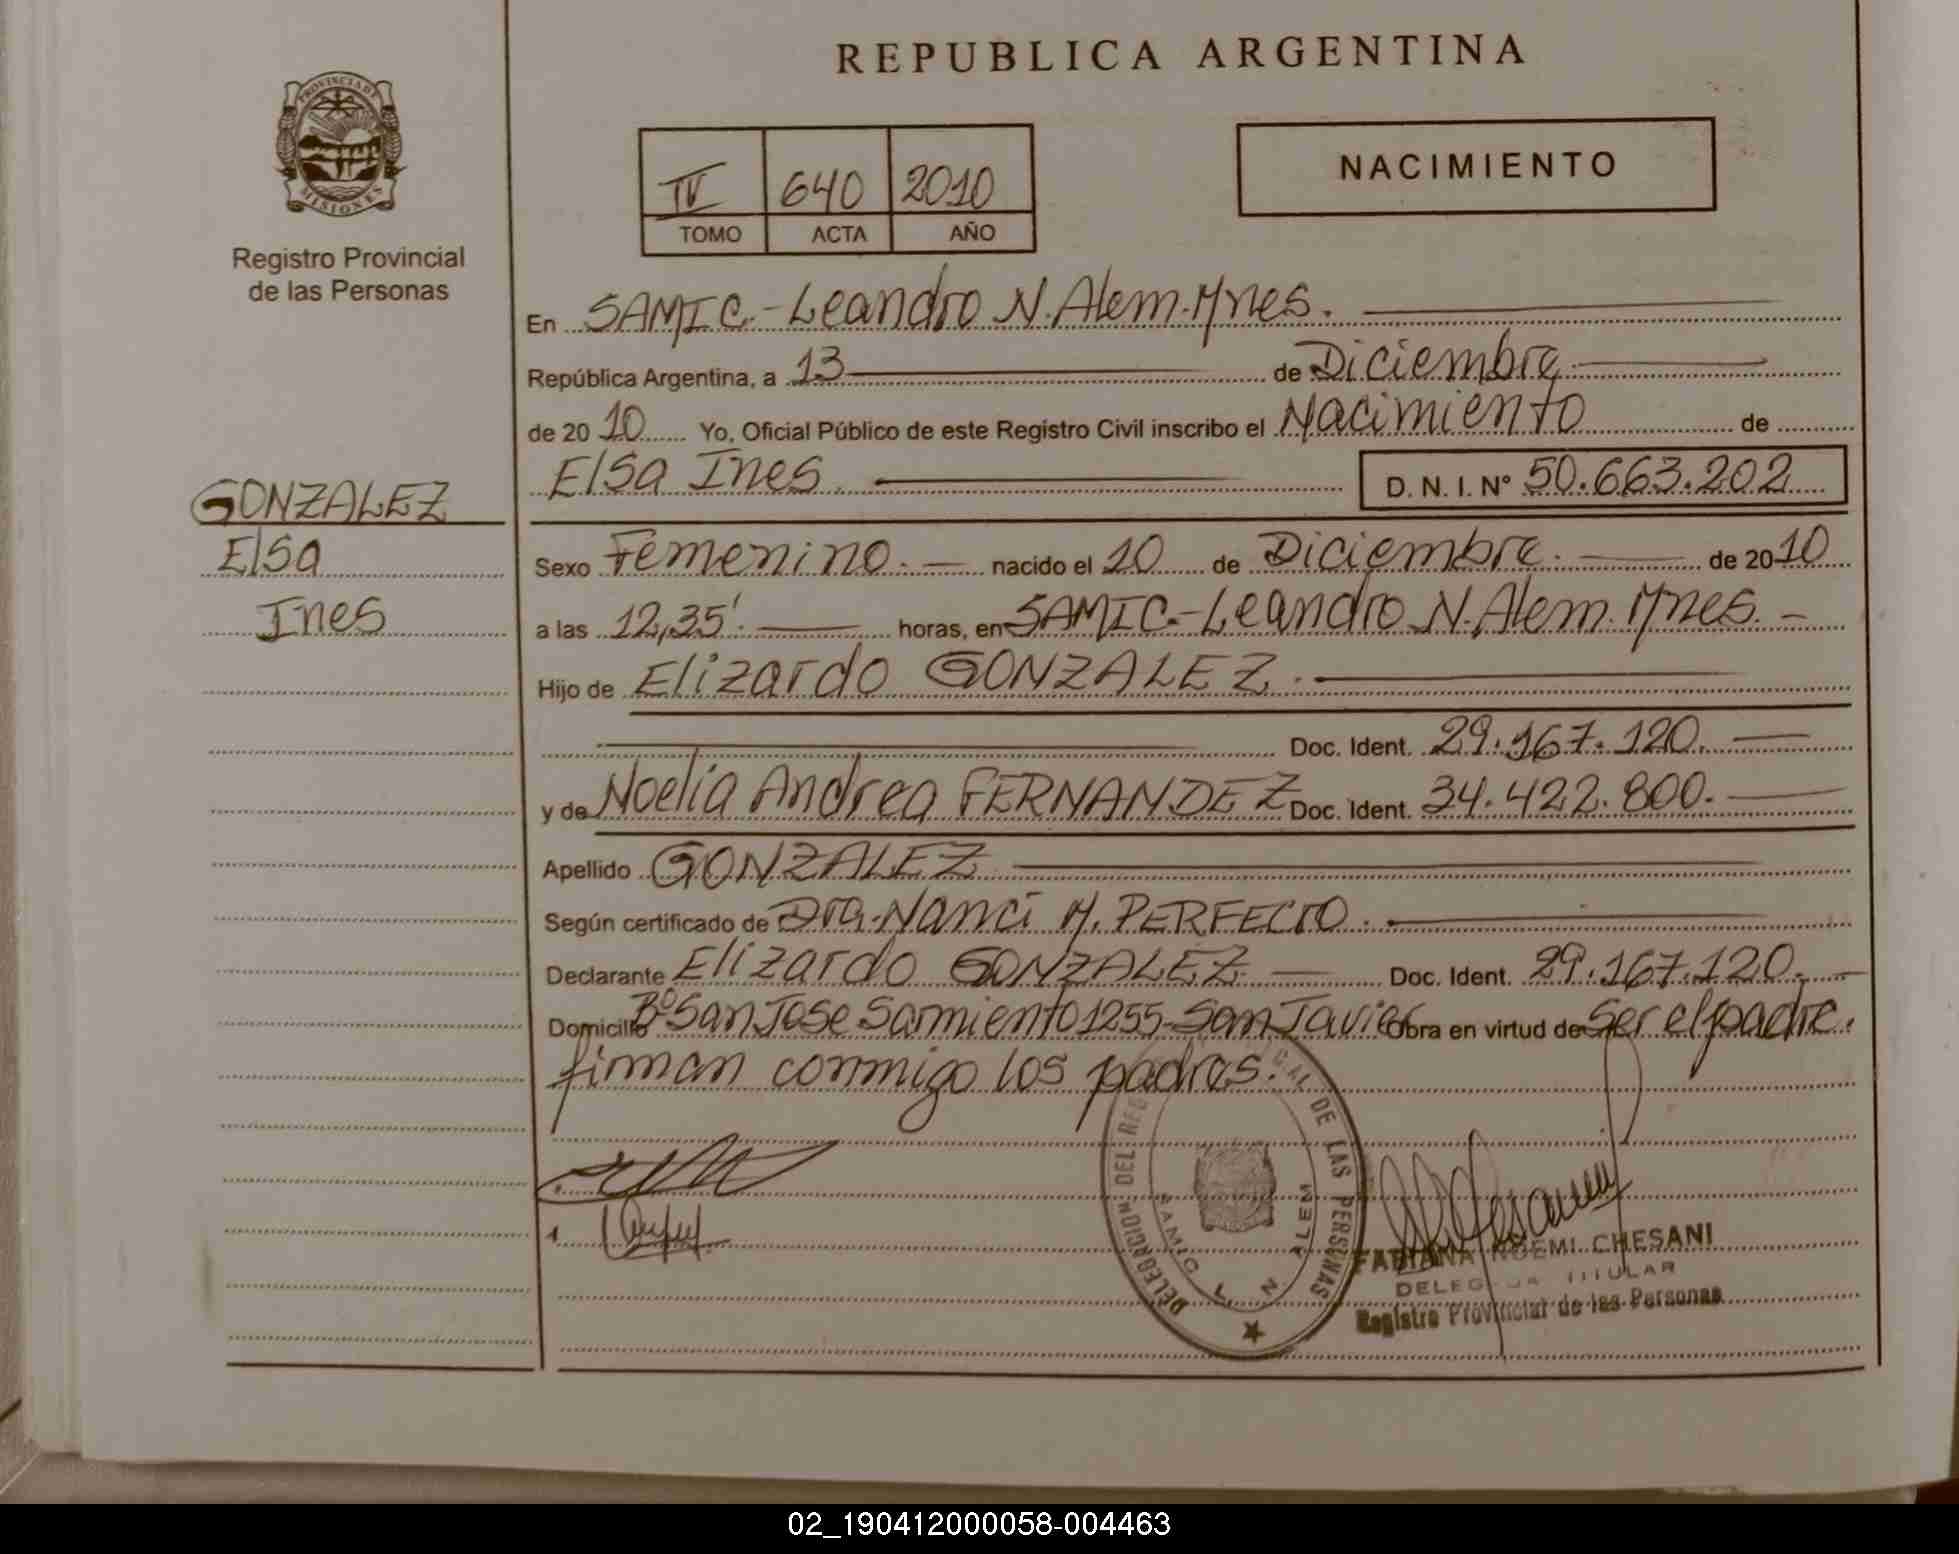 REPUBLICA ARGENTINA
PROVINCIA DE
MISIONES
Registro Provincial
de las Personas
IV 640 2010
TOMO ACTA AÑO
NACIMIENTO
En SAMIC.-Leandro N. Alem. Mnes.
República Argentina, a 13 de Diciembre
de 20 10 Yo, Oficial Público de este Registro Civil inscribo el Nacimiento de
Elsa Ines. D. N. I. N° 50.663.202
GONZALEZ
Elsa
Ines
Sexo Femenino.- nacido el 10 de Diciembre. de 20 10
a las 12,35'. horas, en SAMIC.-Leandro N. Alem. Mnes. -
Hijo de Elizardo GONZALEZ.
Doc. Ident. 29.167.120.
y de Noelia Andrea FERNANDEZ Doc. Ident. 34.422.800.
Apellido GONZALEZ
Según certificado de Dra. Nanci M. PERFECTO.
Declarante Elizardo GONZALEZ Doc. Ident. 29.167.120.
Domicilio B° San Jose Sarmiento 1255-San Javier Obra en virtud de Ser el padre.
firman conmigo los padres.
DELEGACION DEL DE LAS PERSONAS
SAMIC L. N. ALEM
FABIANA NOEMI CHESANI
DELEGADA TITULAR
Registro Provincial de las Personas
02_190412000058-004463